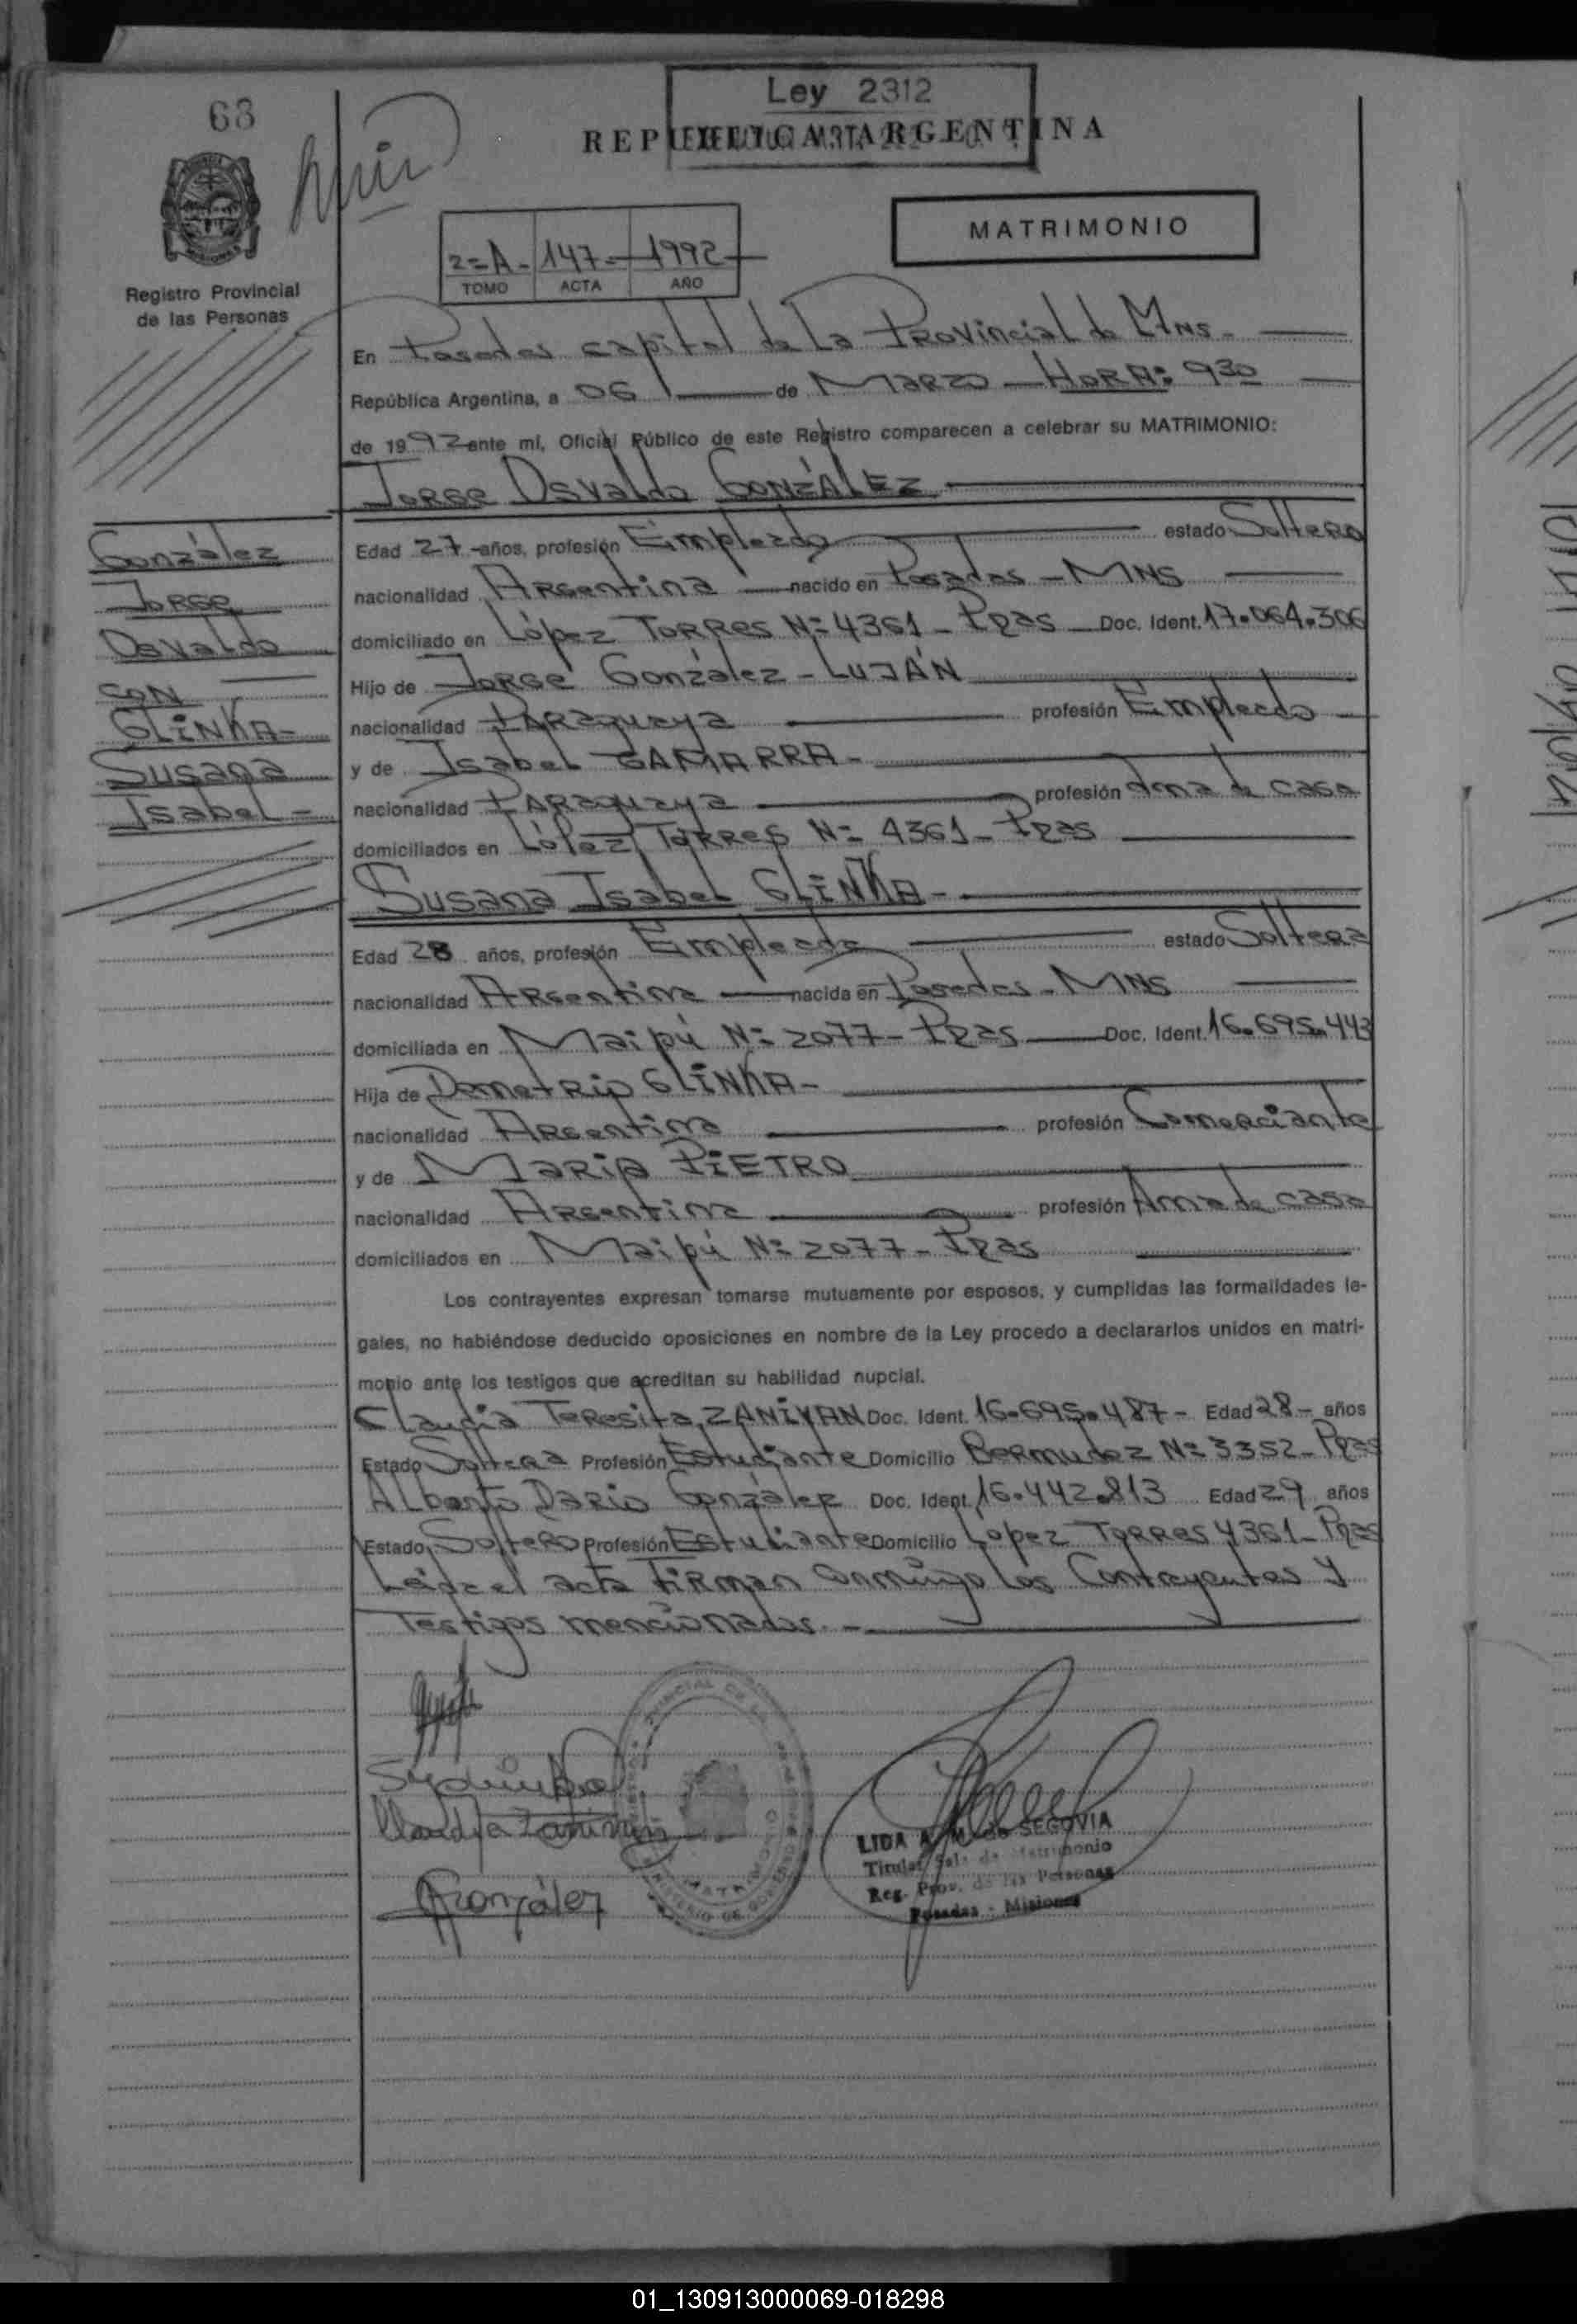 68
Ley 2312
REPUBLICA ARGENTINA
MATRIMONIO
2=A- 147- 1992
TOMO ACTA AÑO
Registro Provincial
de las Personas
En Posadas capital de La Provincial de Mns-
República Argentina, a 06 de Marzo - HORA: 930
de 1992 ante mí, Oficial Público de este Registro comparecen a celebrar su MATRIMONIO:
Jorge Osvaldo GONZÁLEZ
González
Jorge
Osvaldo
CON
GLINKA-
Susana
Isabel-
Edad 27-años, profesión Empleado estado Soltero
nacionalidad Argentina nacido en Posadas - MNS
domiciliado en López Torres N= 4361 - Pdas Doc. Ident. 17.064.306
Hijo de Jorge González - LUJÁN
nacionalidad Paraguaya profesión Empleado
y de Isabel GAMARRA-
nacionalidad Paraguaya profesión Ama de casa
domiciliados en López Torres N= 4361- Pdas
Susana Isabel GLINKA-
Edad 28 años, profesión Empleada estado Soltera
nacionalidad Argentina nacida en Posadas - MNS
domiciliada en Maipú N= 2077- Pdas Doc. Ident. 16.695.443
Hija de Demetrio GLINKA-
nacionalidad Argentina profesión Comerciante
y de Maria PIETRO
nacionalidad Argentina profesión Ama de casa
domiciliados en Maipú N= 2077- Pdas
Los contrayentes expresan tomarse mutuamente por esposos, y cumplidas las formalidades le-
gales, no habiéndose deducido oposiciones en nombre de la Ley procedo a declararlos unidos en matri-
monio ante los testigos que acreditan su habilidad nupcial.
Claudia Teresita ZANIVAN Doc. Ident. 16.695.487- Edad 28- años
Estado Soltera Profesión Estudiante Domicilio Bermudez N= 3352- Pdas
Alberto Dario González Doc. Ident. 16.442.813 Edad 29 años
Estado Soltero Profesión Estudiante Domicilio Lopez Torres 4361- Pdas
Leída el acta Firman Conmigo los Contrayentes y
Testigos mencionados.-
Claudia Zanivan
González
LIDA A. M. de SEGOVIA
Titular Sala de Matrimonio
Reg. Prov. de las Personas
Posadas - Misiones
01_130913000069-018298